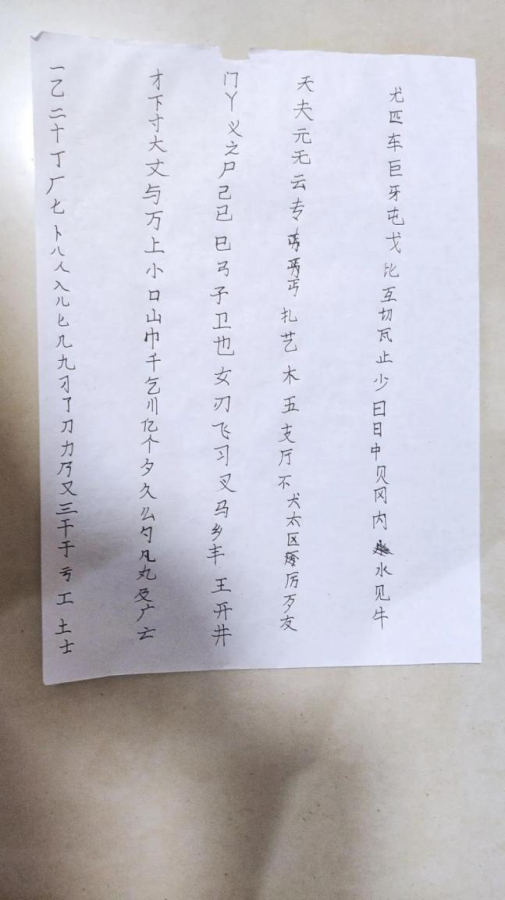 一乙二十丁厂七卜八人入儿匕几九刁了刀力乃又三干于亏工土士
才下寸大丈与万上小口山巾千乞川亿个夕久么勺凡丸及广亡
门丫义之尸己已巳弓子卫也女刃飞习叉马乡丰王开井
天夫元无云专丐扎艺木五支厅不犬太区历歹友
尤匹车巨牙屯戈比互切瓦止少曰日中贝冈内水见牛